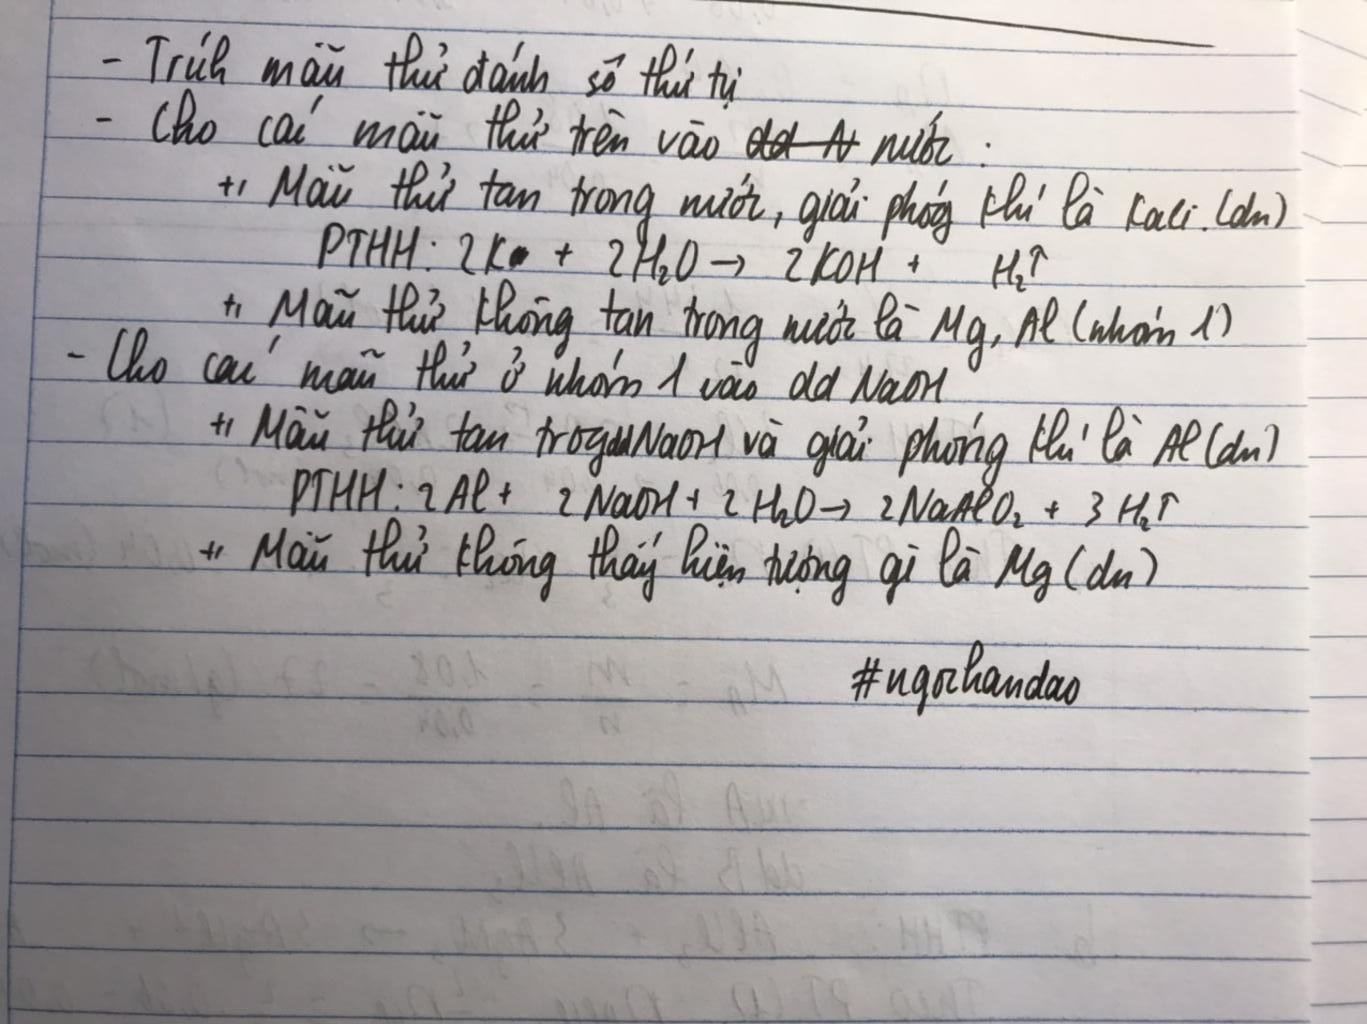 - Trích mẫu thử đánh số thứ tự
- Cho các mẫu thử trên vào dd N nước :
+, Mẫu thử tan trong nước, giải phóg khí là Kali. (dn)
PTHH: 2K + 2H₂O → 2KOH + H₂↑
+, Mẫu thử không tan trong nước là Mg, Al (nhóm 1)
- Cho các mẫu thử ở nhóm 1 vào dd NaOH
+, Mẫu thử tan trog dd NaOH và giải phóng khí là Al (dn)
PTHH: 2Al + 2NaOH + 2H₂O → 2NaAlO₂ + 3H₂↑
+, Mẫu thử không thấy hiện tượng gì là Mg (dn)
#ngochandao